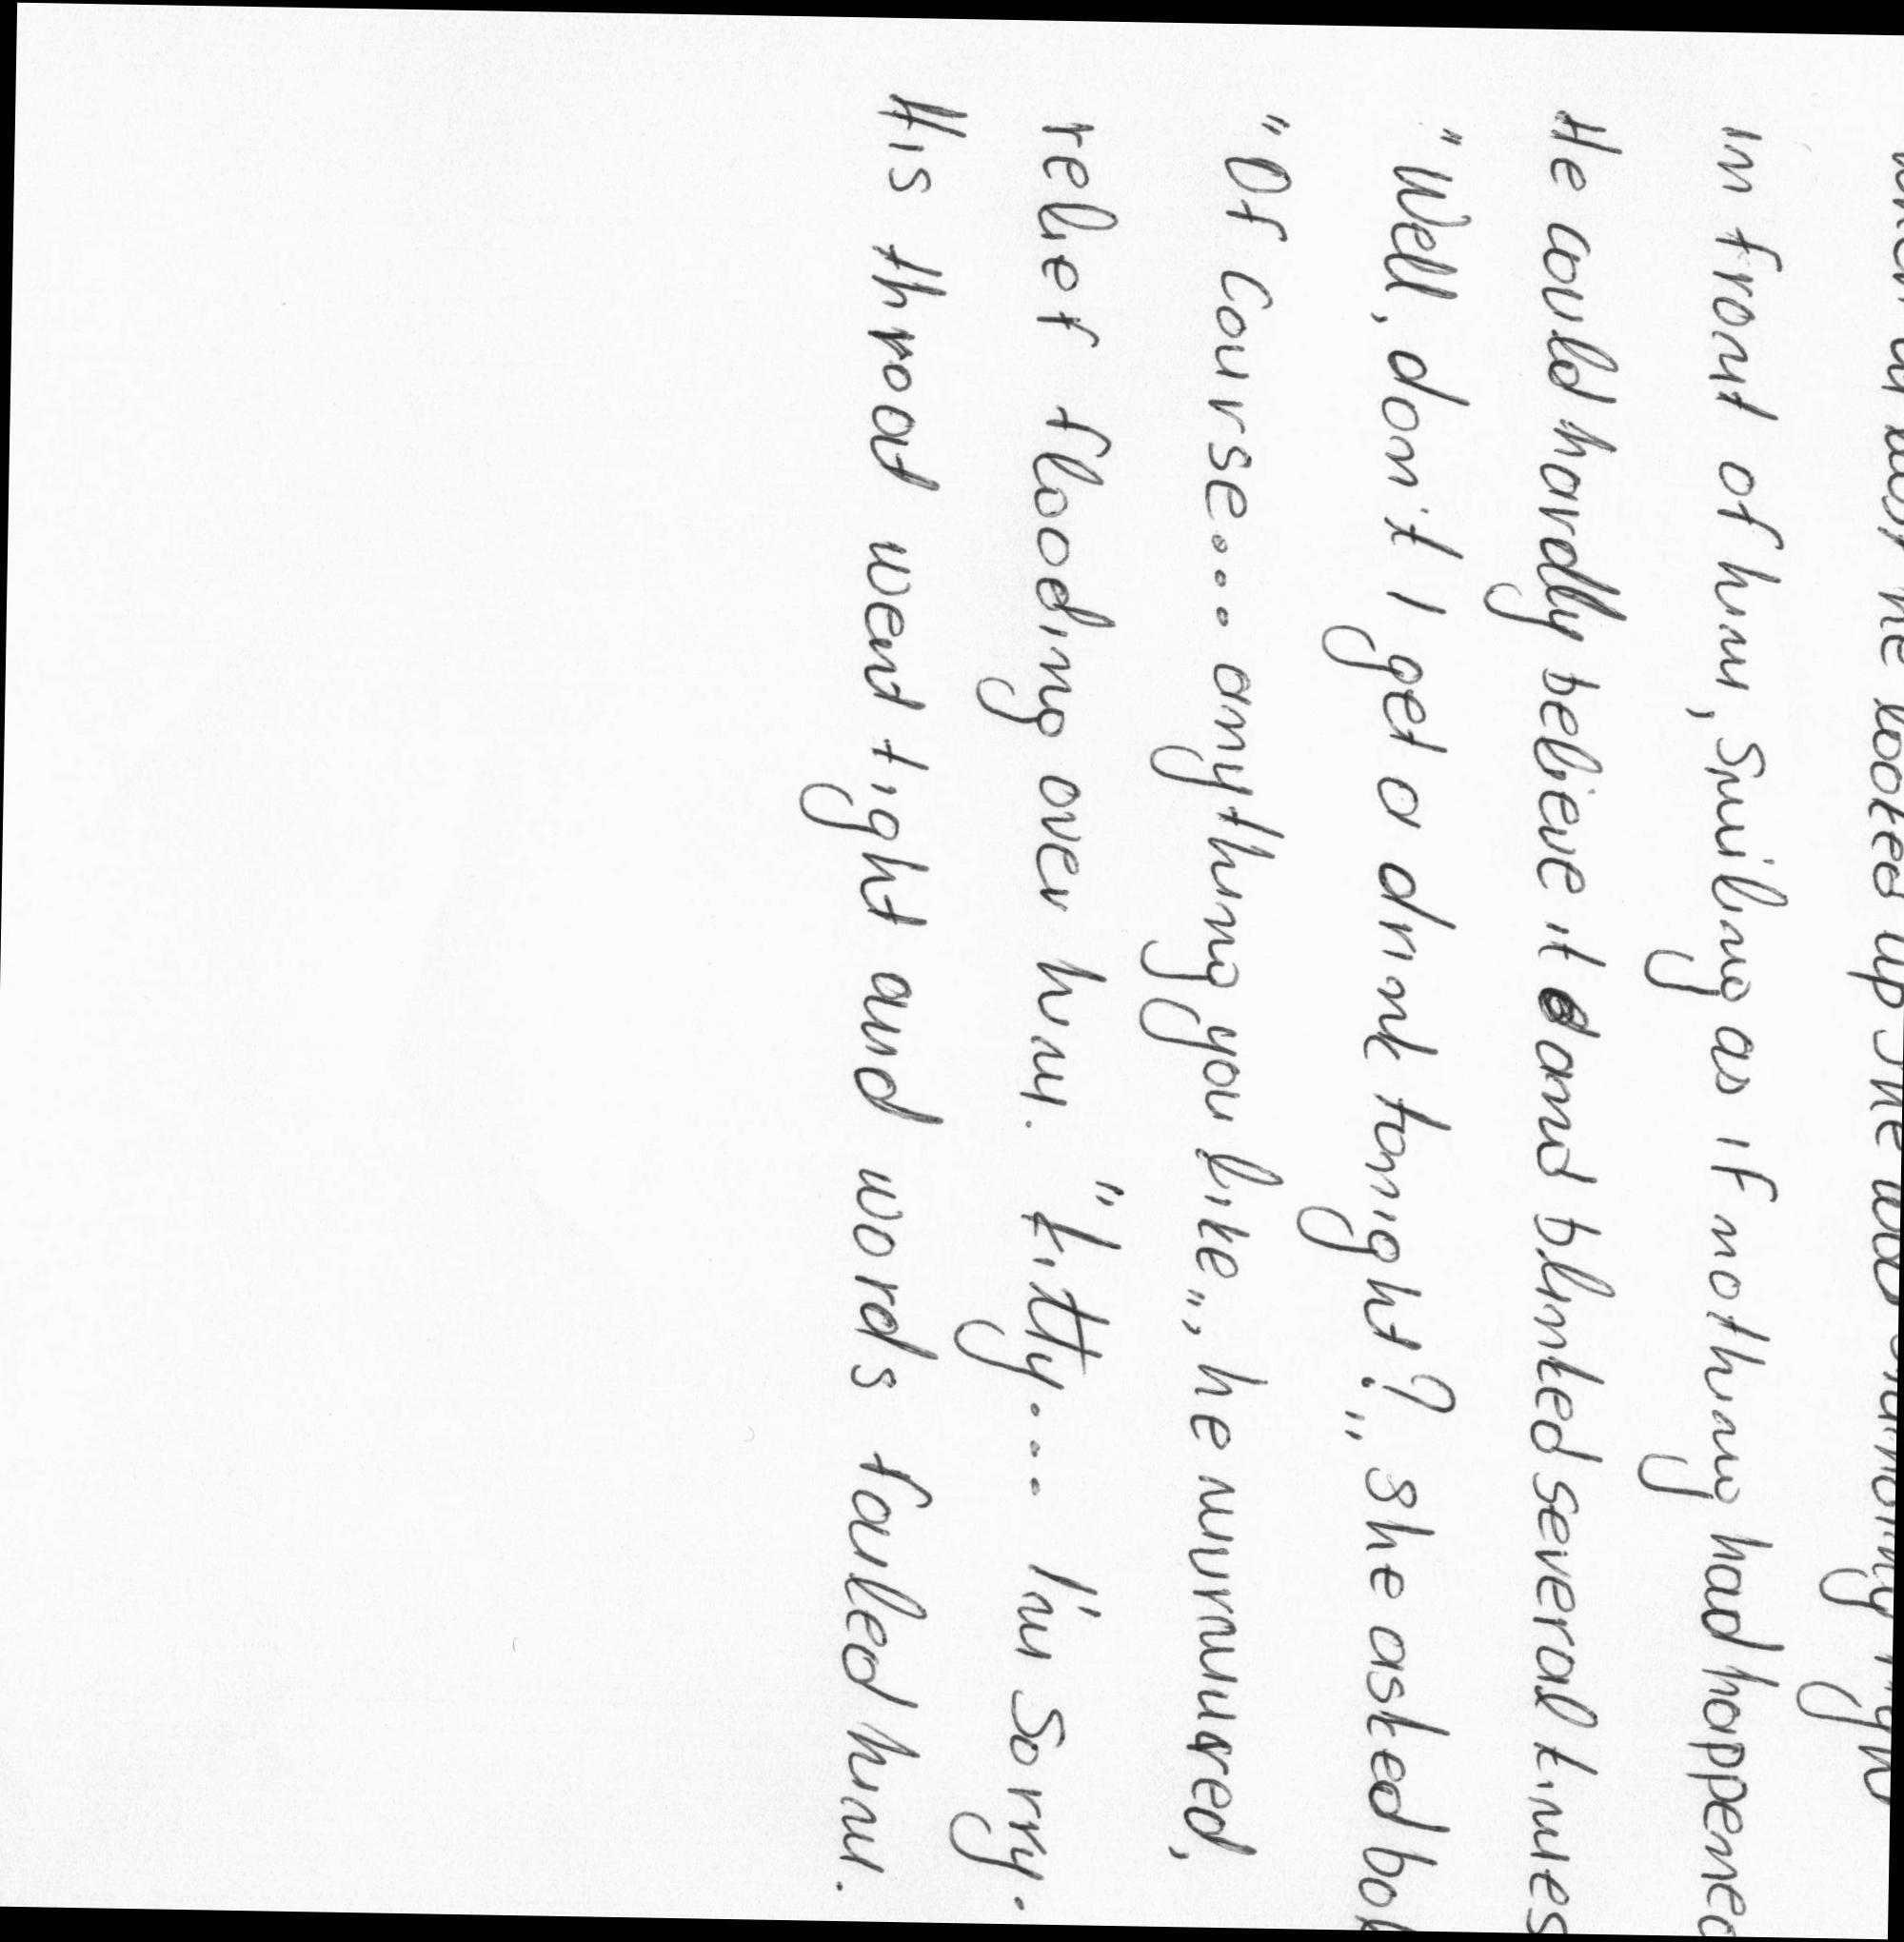 he looked up she was standing right
in front of him, smiling as if nothing had happened
He could hardly believe it and blinked several times
"Well, don't I get a drink tonight?" she asked
"Of course... anything you like", he murmured,
relief flooding over him. "Kitty... I'm sorry.
His throat went tight and words failed him.